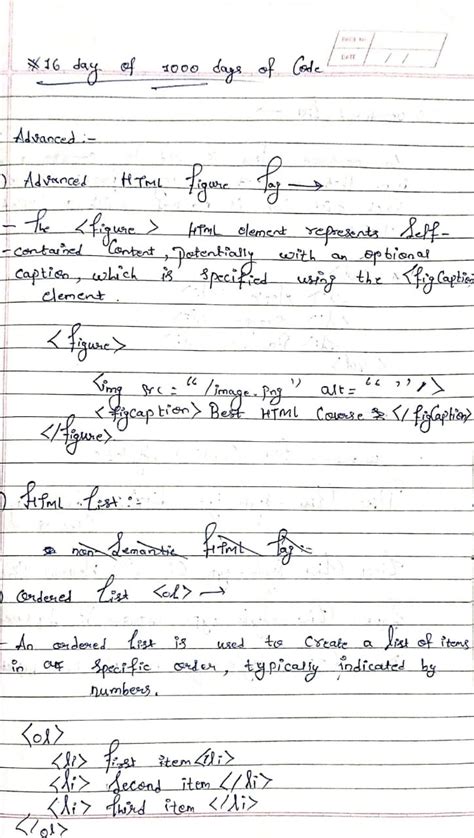 *16 day of 1000 days of Code
DATE / /
Advanced :-
) Advanced HTML Figure Tag →
- The <figure> HTML element represents Self-
- contained Content, Potentially with an optional
caption, which is specified using the <figCaption
element.
<figure>
<img src = "/image.png" alt = " " />
<figcaption> Best HTML Course </figCaption>
</figure>
) HTML List :-
non-Semantic HTML Tag :-
) ordered List <ol> →
- An ordered list is used to Create a list of items
in a specific order, typically indicated by
numbers.
<ol>
<li> First item </li>
<li> Second item </li>
<li> Third item </li>
</ol>